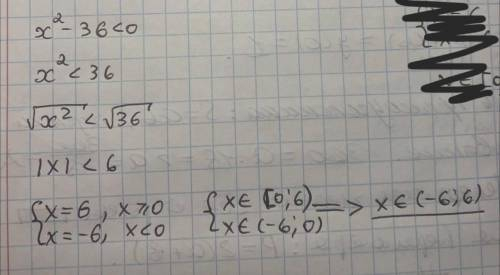 x² - 36 < 0
x² < 36
√x² < √36
|x| < 6
{x = 6, x ⩾ 0
{x = -6, x < 0
{x ∈ [0; 6)
{x ∈ (-6; 0)
=> x ∈ (-6; 6)